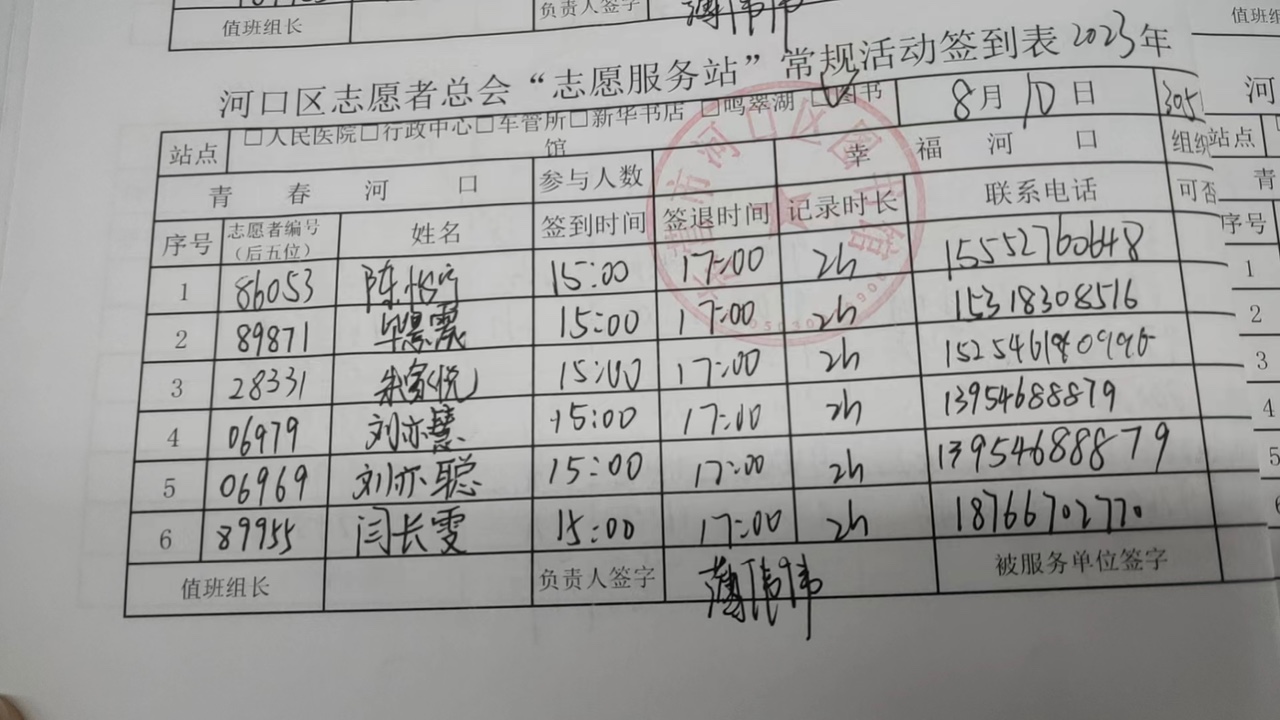 值班组长 负责人签字
河口区志愿者总会“志愿服务站”常规活动签到表2023年
站点 □人民医院□行政中心□车管所□新华书店 □鸣翠湖 ☑图书馆 8月10日
青春河口 参与人数 幸福河口 组织
序号 志愿者编号（后五位） 姓名 签到时间 签退时间 记录时长 联系电话 可否
1 86053 15:00 17:00 2h 15552760648
2 89871 15:00 17:00 2h 15318308516
3 28331 朱家悦 15:00 17:00 2h
4 06979 刘亦慧 15:00 17:00 2h 13954688879
5 06969 刘亦聪 15:00 17:00 2h 13954688879
6 89955 闫长雯 15:00 17:00 2h 18766702770
值班组长 负责人签字 薄伟伟 被服务单位签字
值班组
河
站点
青
序号
1
2
3
4
5